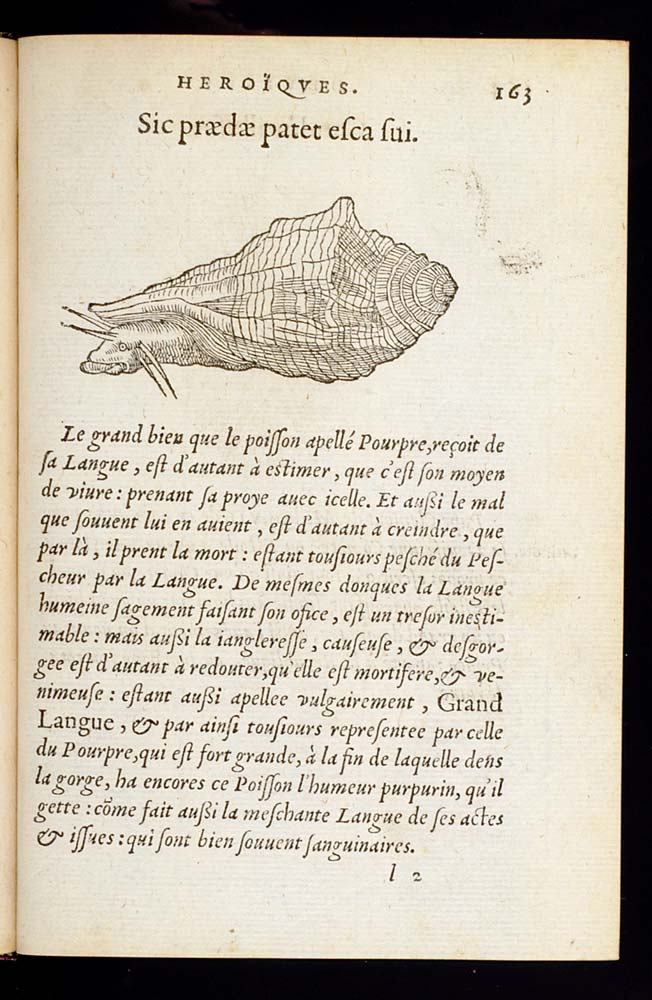 HEROÏQVES.
163
Sic prædæ patet eſca ſui.
Le grand bien que le poiſſon apellé Pourpre, reçoit de
ſa Langue, eſt d'autant à eſtimer, que c'eſt ſon moyen
de viure: prenant ſa proye auec icelle. Et außi le mal
que ſouuent lui en auient, eſt d'autant à creindre, que
par là, il prent la mort: eſtant touſiours peſché du Peſ-
cheur par la Langue. De meſmes donques la Langue
humeine ſagement faiſant ſon ofice, eſt un treſor ineſti-
mable: mais außi la ianglereſſe, cauſeuſe, & deſgor-
gee eſt d'autant à redouter, qu'elle eſt mortifere, & ve-
nimeuſe: eſtant außi apellee vulgairement, Grand
Langue, & par ainſi touſiours repreſentee par celle
du Pourpre, qui eſt fort grande, à la fin de laquelle dens
la gorge, ha encores ce Poiſſon l'humeur purpurin, qu'il
gette: cõme fait außi la meſchante Langue de ſes actes
& iſſues: qui ſont bien ſouuent ſanguinaires.
l 2